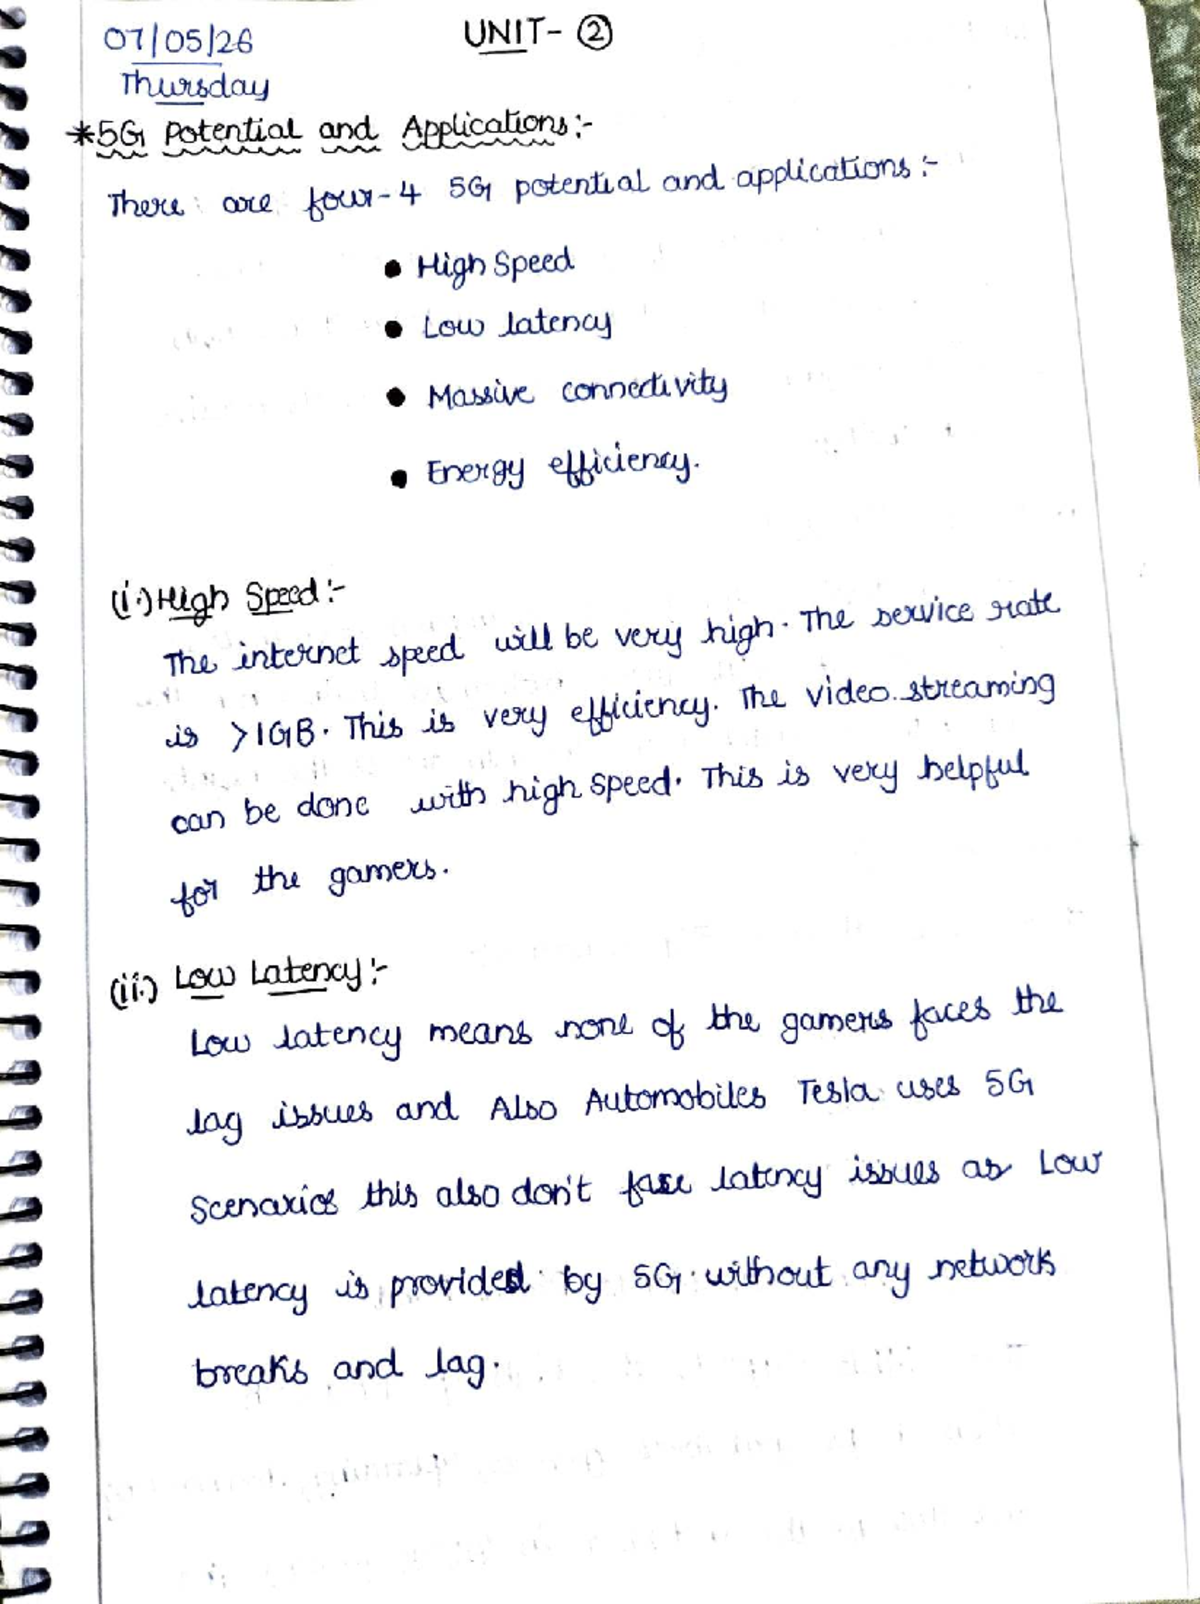 07/05/26
UNIT- ②
Thursday
*5G Potential and Applications:-
There are four-4 5G potential and applications:-
● High Speed
● Low latency
● Massive connectivity
● Energy efficiency.
(i.) High Speed:-
The internet speed will be very high. The service rate
is >1GB. This is very efficiency. The video streaming
can be done with high speed. This is very helpful
for the gamers.
(ii.) Low Latency:-
Low latency means none of the gamers faces the
lag issues and Also Automobiles Tesla uses 5G
Scenarios this also don't face latency issues as Low
latency is provided by 5G without any network
breaks and lag.